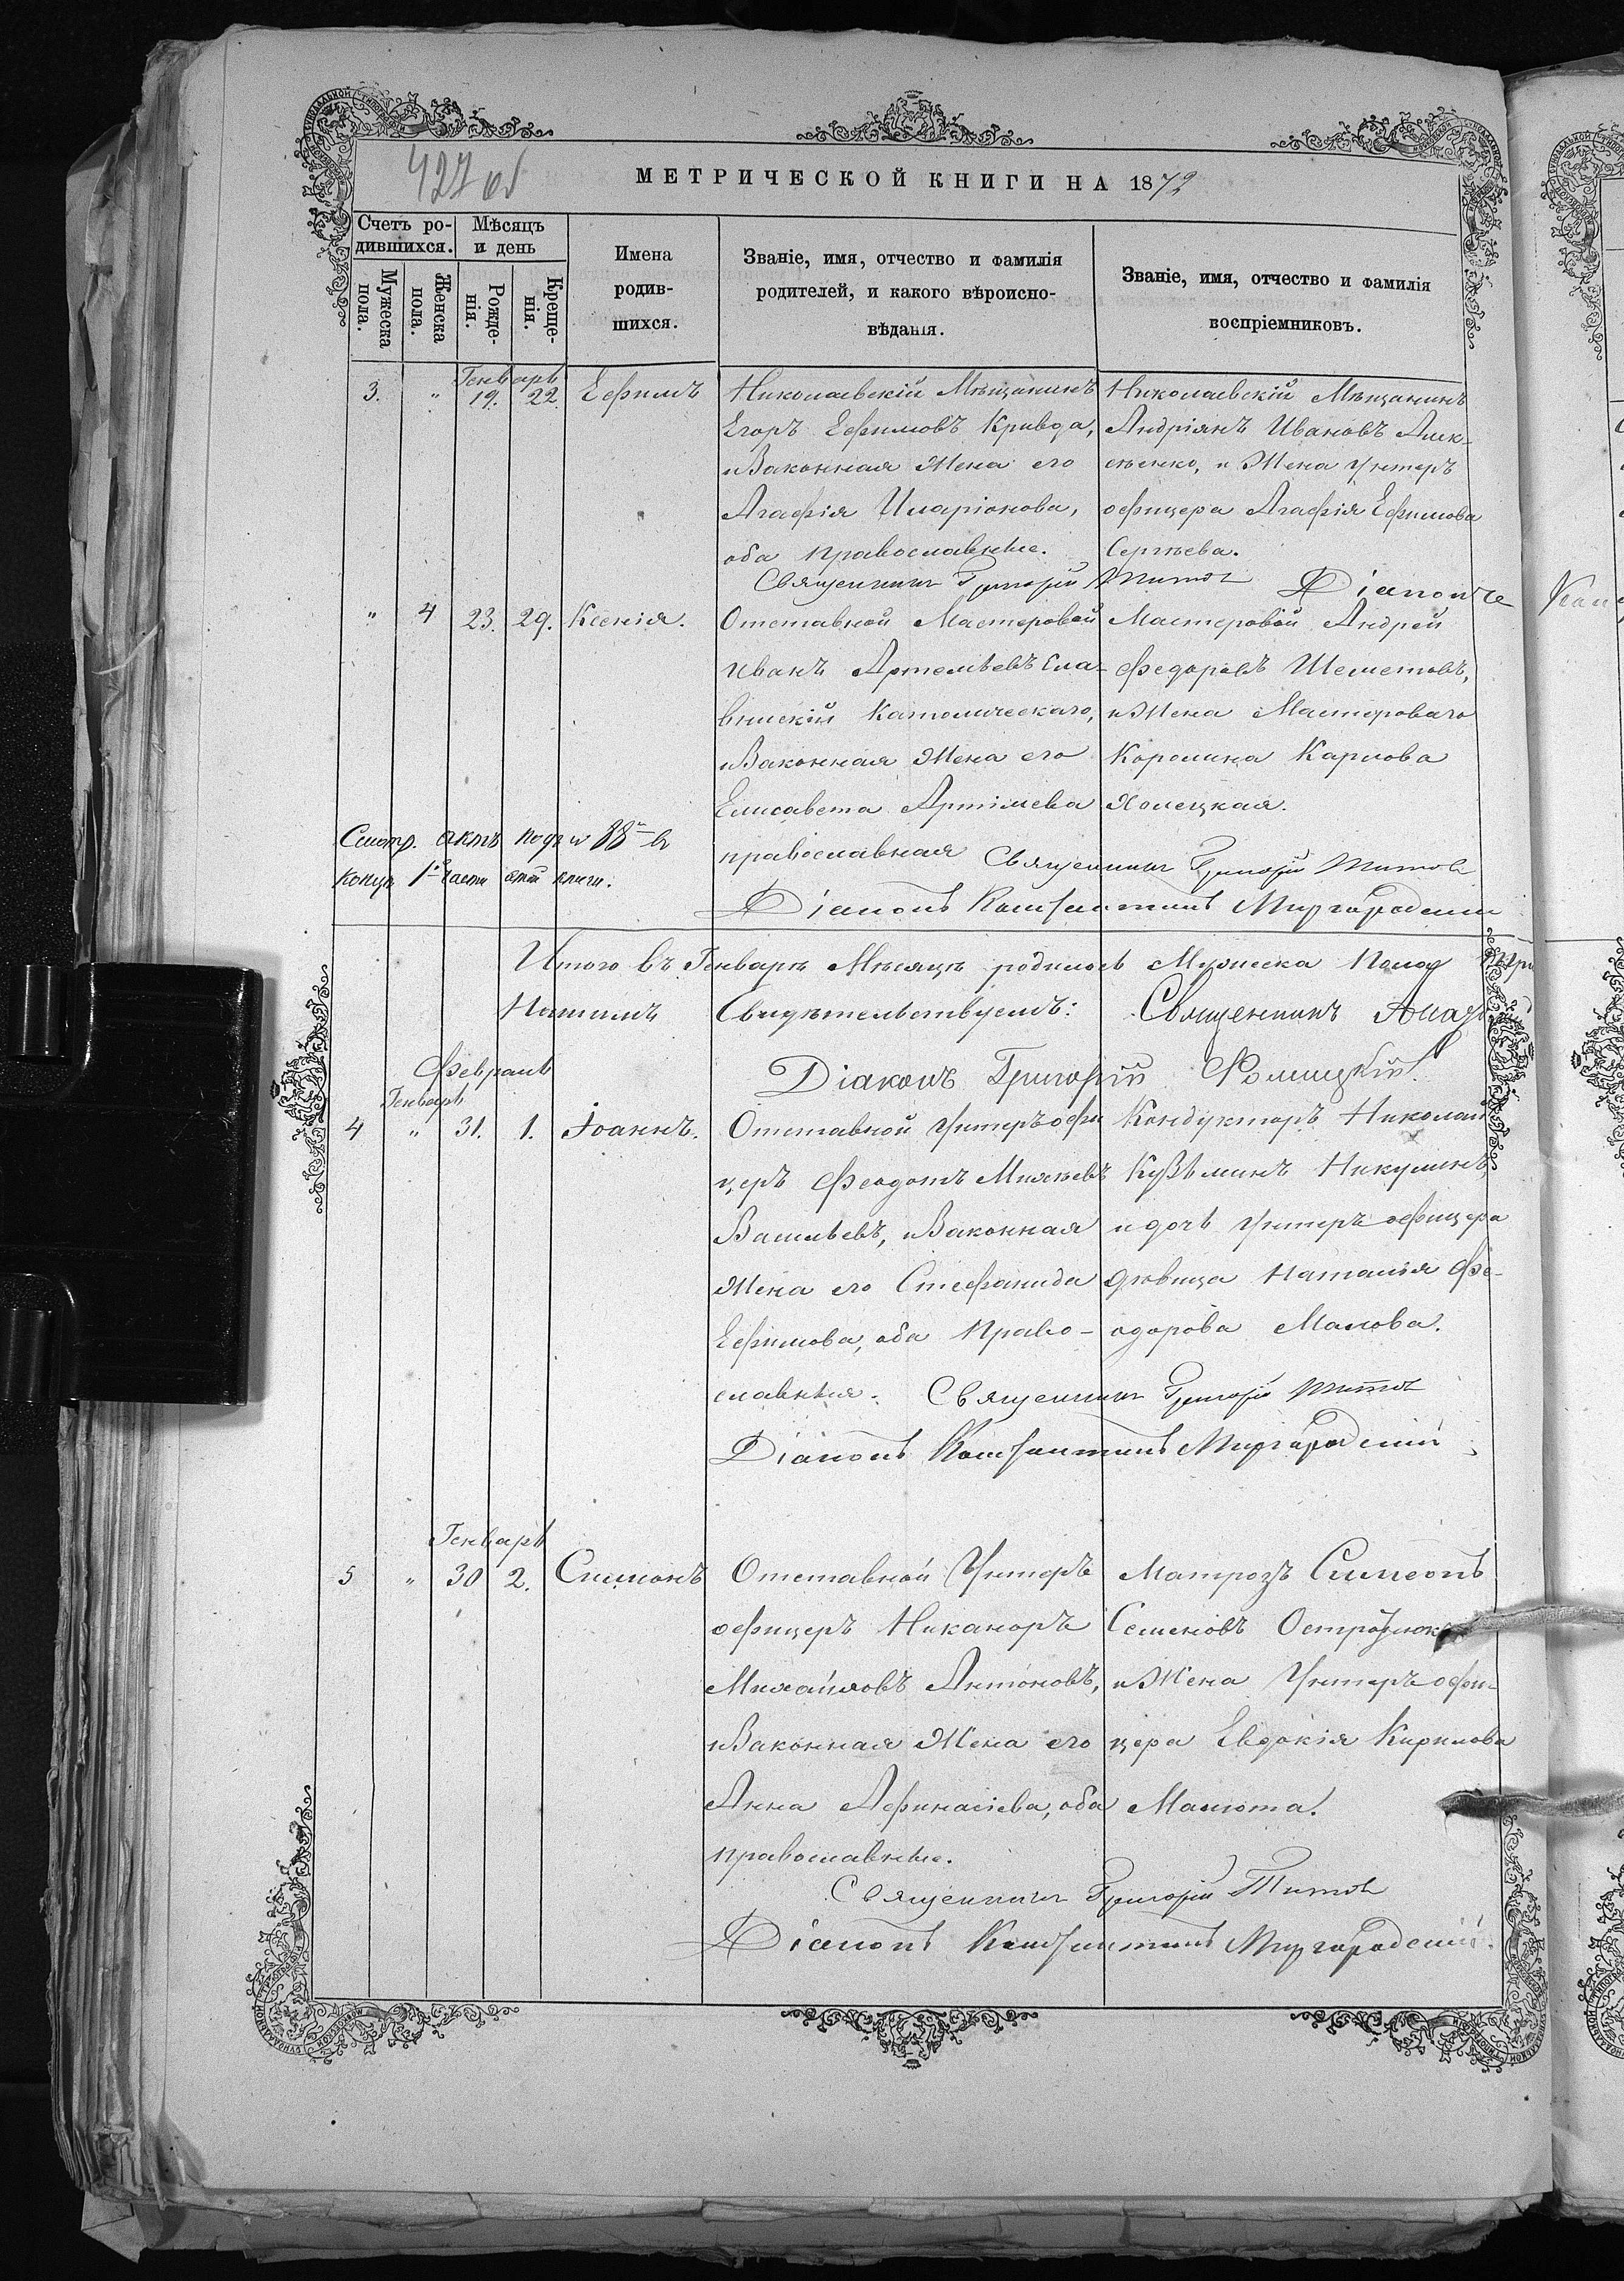 427 об
МЕТРИЧЕСКОЙ КНИГИ НА 1872
Счетъ ро-
дившихся.
Мѣсяцъ
и день
Мужеска
пола.
Женска
пола.
Рожде-
нія.
Креще-
нія.
Имена
родив-
шихся.
Званіе, имя, отчество и фамилія
родителей, и какого вѣроиспо-
вѣданія.
Званіе, имя, отчество и фамилія
воспріемниковъ.
Генварь
3. " 19. 22. Ефимъ
Николаевскій Мѣщанинъ
Егоръ Ефимовъ Кривда,
и Законная Жена его
Агафія Иларіонова,
оба православные.
Николаевскій Мѣщанинъ
Андріянъ Ивановъ Алек-
сѣенко, и Жена Унтеръ
офицера Агафія Ефимова
Сергѣева.
Священникъ Григорій Титовъ Діаконъ
" 4 23. 29. Ксенія.
Отставной Мастеровой
Иванъ Артемьевъ Сла-
винскій Католическаго,
и Законная Жена его
Елисавета Артімева
православная
Мастеровой Андрей
Федоровъ Шеметовъ,
и Жена Мастероваго
Королина Карлова
Холецкая.
Священникъ Григорій Титовъ
Діаконъ Константинъ Миргородскій
Смотр. актъ подъ № 88 въ
концѣ 1й части этой книги.
Итого въ Генварѣ Мѣсяцѣ родилось Мужеска Пола три
Свидѣтельствуемъ: Священникъ
Діаконъ Григорій
Февраль
Генварь
4 " 31. 1. Іоаннъ.
Отставной Унтеръ офи
церъ Феодотъ Михѣевъ
Васильевъ, и Законная
Жена его Стефанида
Ефимова, оба Право-
славные.
Кондукторъ Николай
Кузьминъ Никулинъ,
и дочь Унтеръ офицера
дѣвица Наталія Фе-
одорова Малова.
Священникъ Григорій Титовъ
Діаконъ Константинъ Миргородскій
Генварь
5 " 30 2. Симонъ
Отставной Унтеръ
офицеръ Никаноръ
Михайловъ Антоновъ,
и Законная Жена его
Анна Афинасіева, оба
православные.
Матрозъ Симеонъ
Семеновъ
и Жена Унтеръ офи-
цера Евдокія Кирилова
Малюта.
Священникъ Григорій Титовъ
Діаконъ Константинъ Миргородскій.